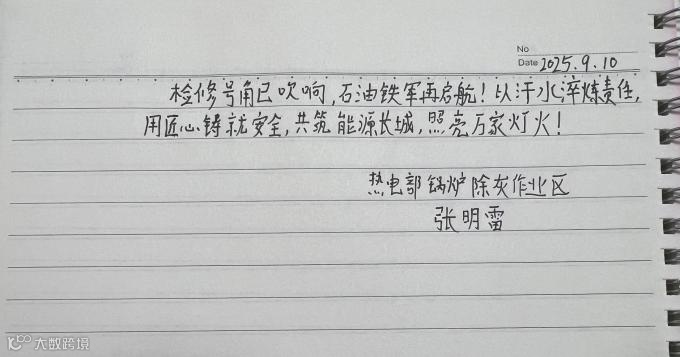 No
Date 2025.9.10
检修号角已吹响,石油铁军再启航!以汗水淬炼责任,
用匠心铸就安全,共筑能源长城,照亮万家灯火!
热电部锅炉除灰作业区
张明雷
大数跨境